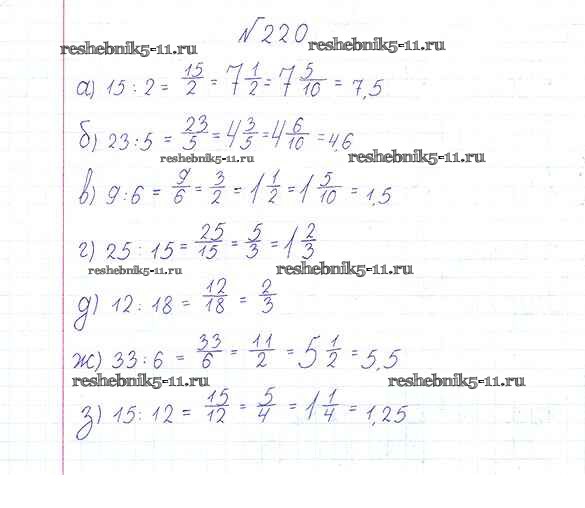 №220
reshebnik5-11.ru reshebnik5-11.ru
а) 15 : 2 = 15/2 = 7 1/2 = 7 5/10 = 7,5
б) 23 : 5 = 23/5 = 4 3/5 = 4 6/10 = 4,6
reshebnik5-11.ru reshebnik5-11.ru
в) 9 : 6 = 9/6 = 3/2 = 1 1/2 = 1 5/10 = 1,5
г) 25 : 15 = 25/15 = 5/3 = 1 2/3
reshebnik5-11.ru reshebnik5-11.ru
д) 12 : 18 = 12/18 = 2/3
ж) 33 : 6 = 33/6 = 11/2 = 5 1/2 = 5,5
reshebnik5-11.ru reshebnik5-11.ru
з) 15 : 12 = 15/12 = 5/4 = 1 1/4 = 1,25